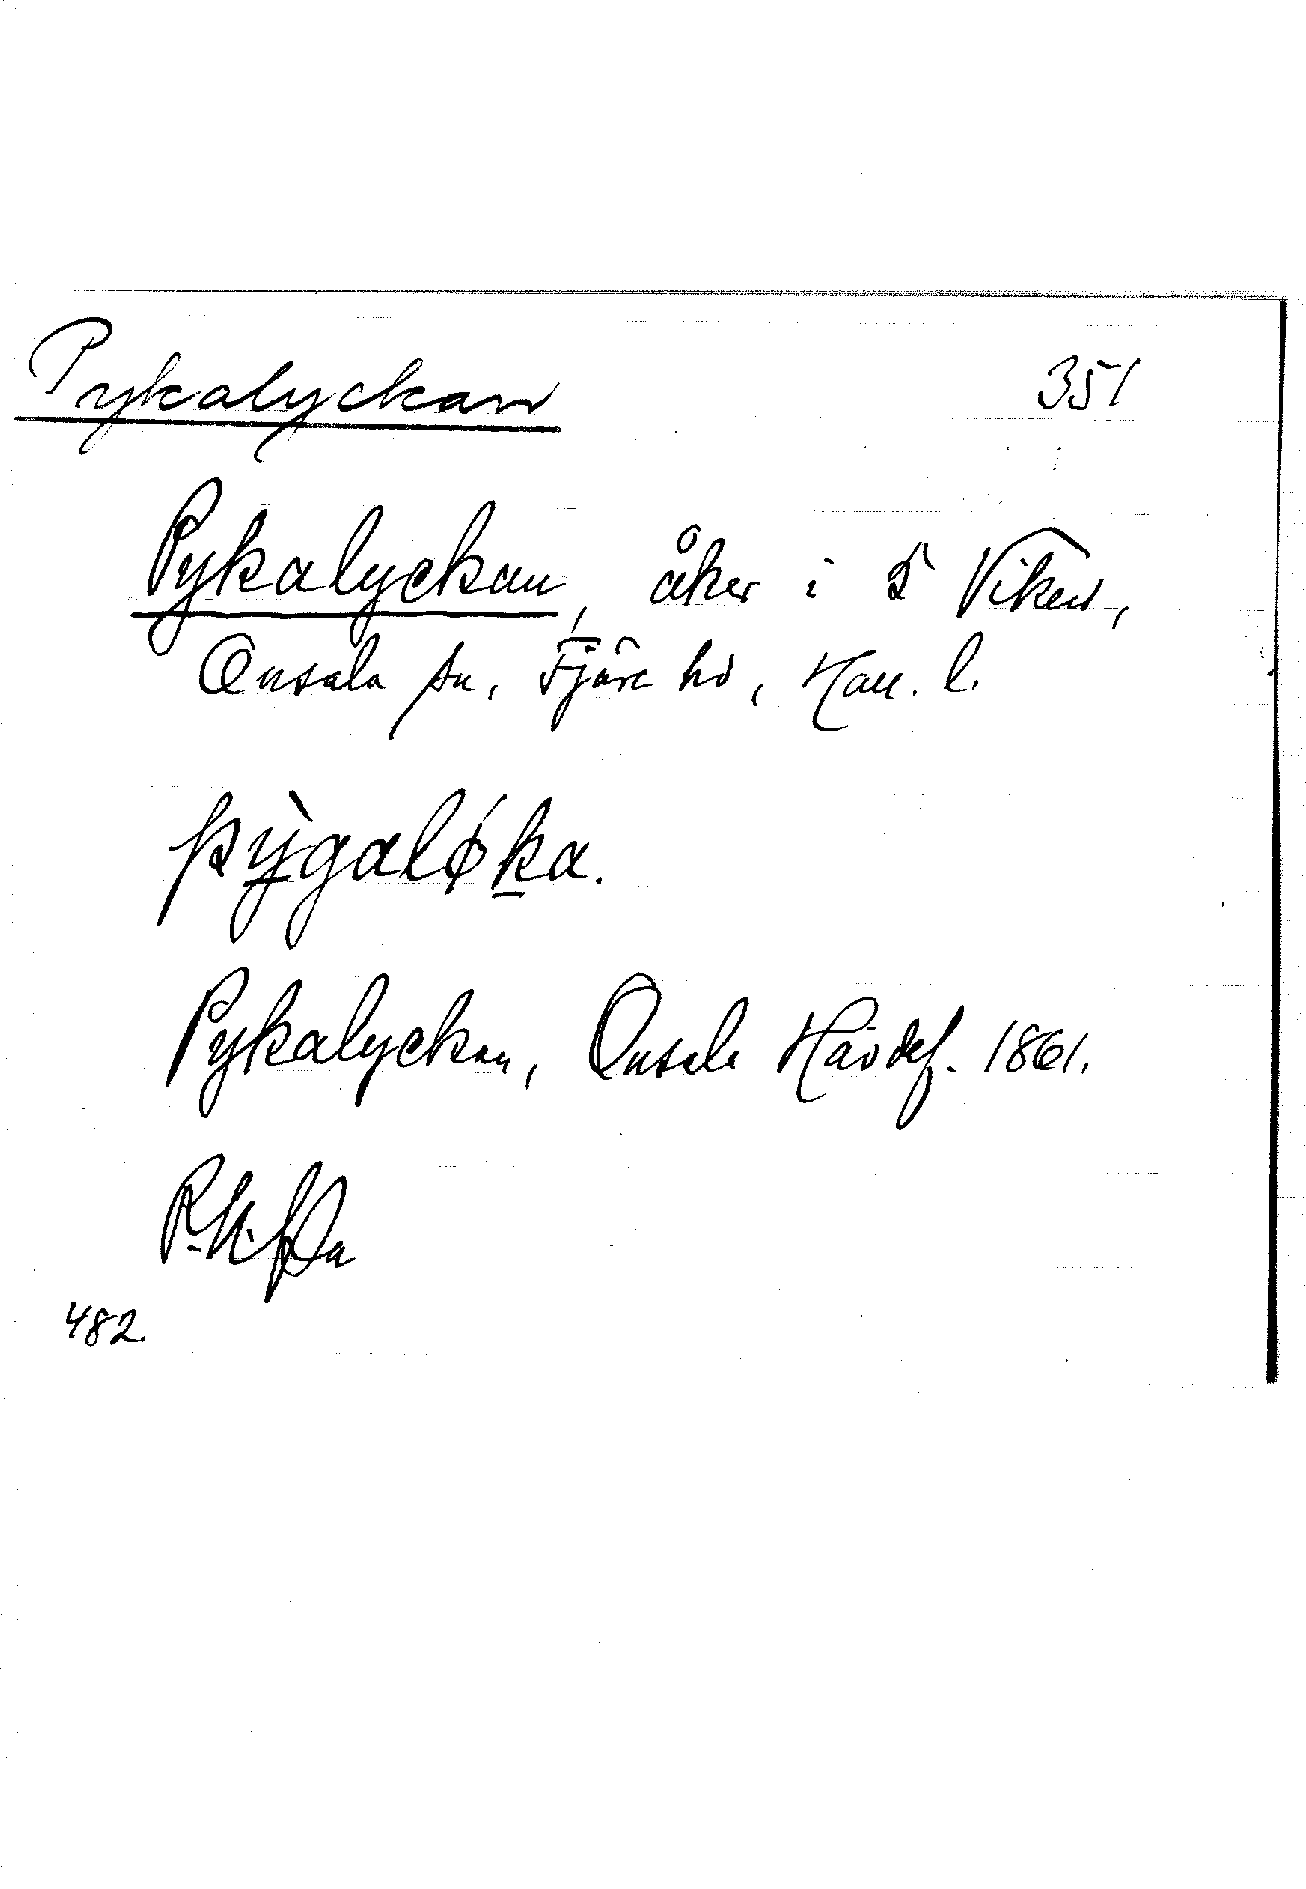 Pykalyckan 351
Pykalyckan, åker i 5 Viken,
Onsala sn, Fjäre hd, Hall. l.
pỳgaløka.
Pykalyckan, Onsala Hävdef. 1861.
482.